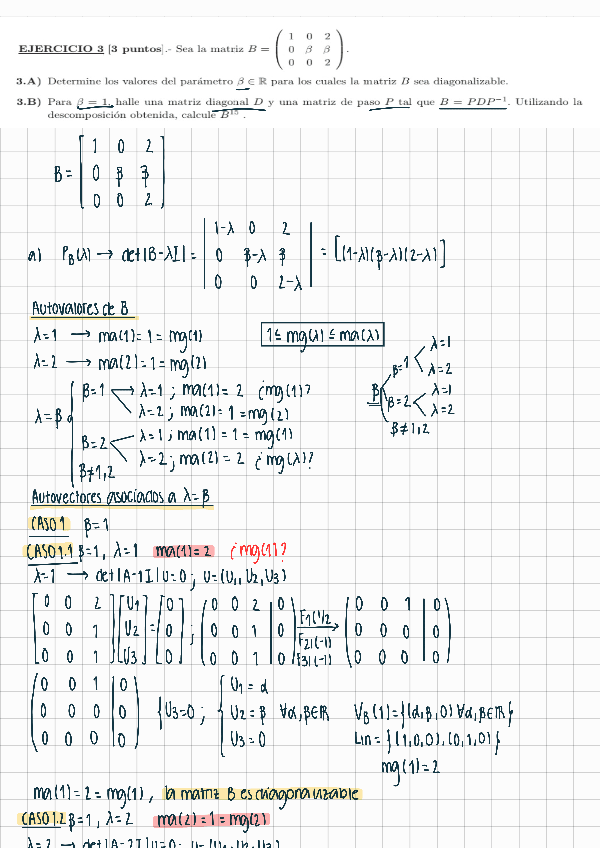 EJERCICIO 3 [3 puntos].- Sea la matriz B = ( 1 0 2
0 β β
0 0 2 ).
3.A) Determine los valores del parámetro β ∈ ℝ para los cuales la matriz B sea diagonalizable.
3.B) Para β = 1, halle una matriz diagonal D y una matriz de paso P tal que B = PDP⁻¹. Utilizando la
descomposición obtenida, calcule B¹⁵.
B = [ 1 0 2
0 β β
0 0 2 ]
a) P_B(λ) → det|B-λI| = | 1-λ 0 2
0 β-λ β
0 0 2-λ | = [(1-λ)(β-λ)(2-λ)]
Autovalores de B
λ=1 → ma(1)=1=mg(1) 1≤mg(λ)≤ma(λ)
λ=2 → ma(2)=1=mg(2)
λ=β { β=1 → λ=1; ma(1)=2 ¿mg(1)?
λ=2; ma(2)=1=mg(2)
β=2 λ=1; ma(1)=1=mg(1)
λ=2; ma(2)=2 ¿mg(λ)?
β≠1,2
β β=1 λ=1
λ=2
β=2 λ=1
λ=2
β≠1,2
Autovectores asociados a λ=β
CASO 1 β=1
CASO 1.1 β=1, λ=1 ma(1)=2 ¿mg(1)?
λ=1 → det|A-1I|U=0; U=(U1,U2,U3)
[ 0 0 2 ] [ U1 ] = [ 0 ] ; ( 0 0 2 | 0 ) F1(1/2 ( 0 0 1 | 0 )
[ 0 0 1 ] [ U2 ] [ 0 ] ( 0 0 1 | 0 ) F21(-1) ( 0 0 0 | 0 )
[ 0 0 1 ] [ U3 ] [ 0 ] ( 0 0 1 | 0 ) F31(-1) ( 0 0 0 | 0 )
( 0 0 1 | 0 ) { U1=α
( 0 0 0 | 0 ) { U3=0 ; U2=β ∀α,β∈ℝ V_B(1)={(α,β,0) ∀α,β∈ℝ}
( 0 0 0 | 0 ) U3=0 Lin={(1,0,0),(0,1,0)}
mg(1)=2
ma(1)=2=mg(1), la matriz B es diagonalizable
CASO 1.2 β=1, λ=2 ma(2)=1=mg(2)
λ=2 → det|A-2I|U=0; U=(U1,U2,U3)